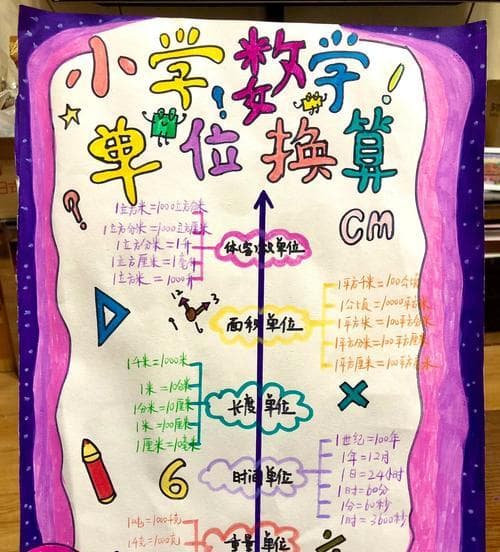 小学数学
单位换算
1立方米=1000立方分米
1立方分米=1000立方厘米
1立方分米=1升
1立方厘米=1毫升
1立方米=1000升
体(容)积单位
cm
12
3
6
面积单位
1平方千米=100公顷
1公顷=10000平方米
1平方米=100平方分米
1平方分米=100平方厘米
1平方厘米=100平方毫米
1千米=1000米
1米=10分米
1分米=10厘米
1米=100厘米
1厘米=10毫米
长度单位
6
时间单位
1世纪=100年
1年=12月
1日=24小时
1时=60分
1分=60秒
1时=3600秒
1吨=1000千克
1千克=1000克
重量单位